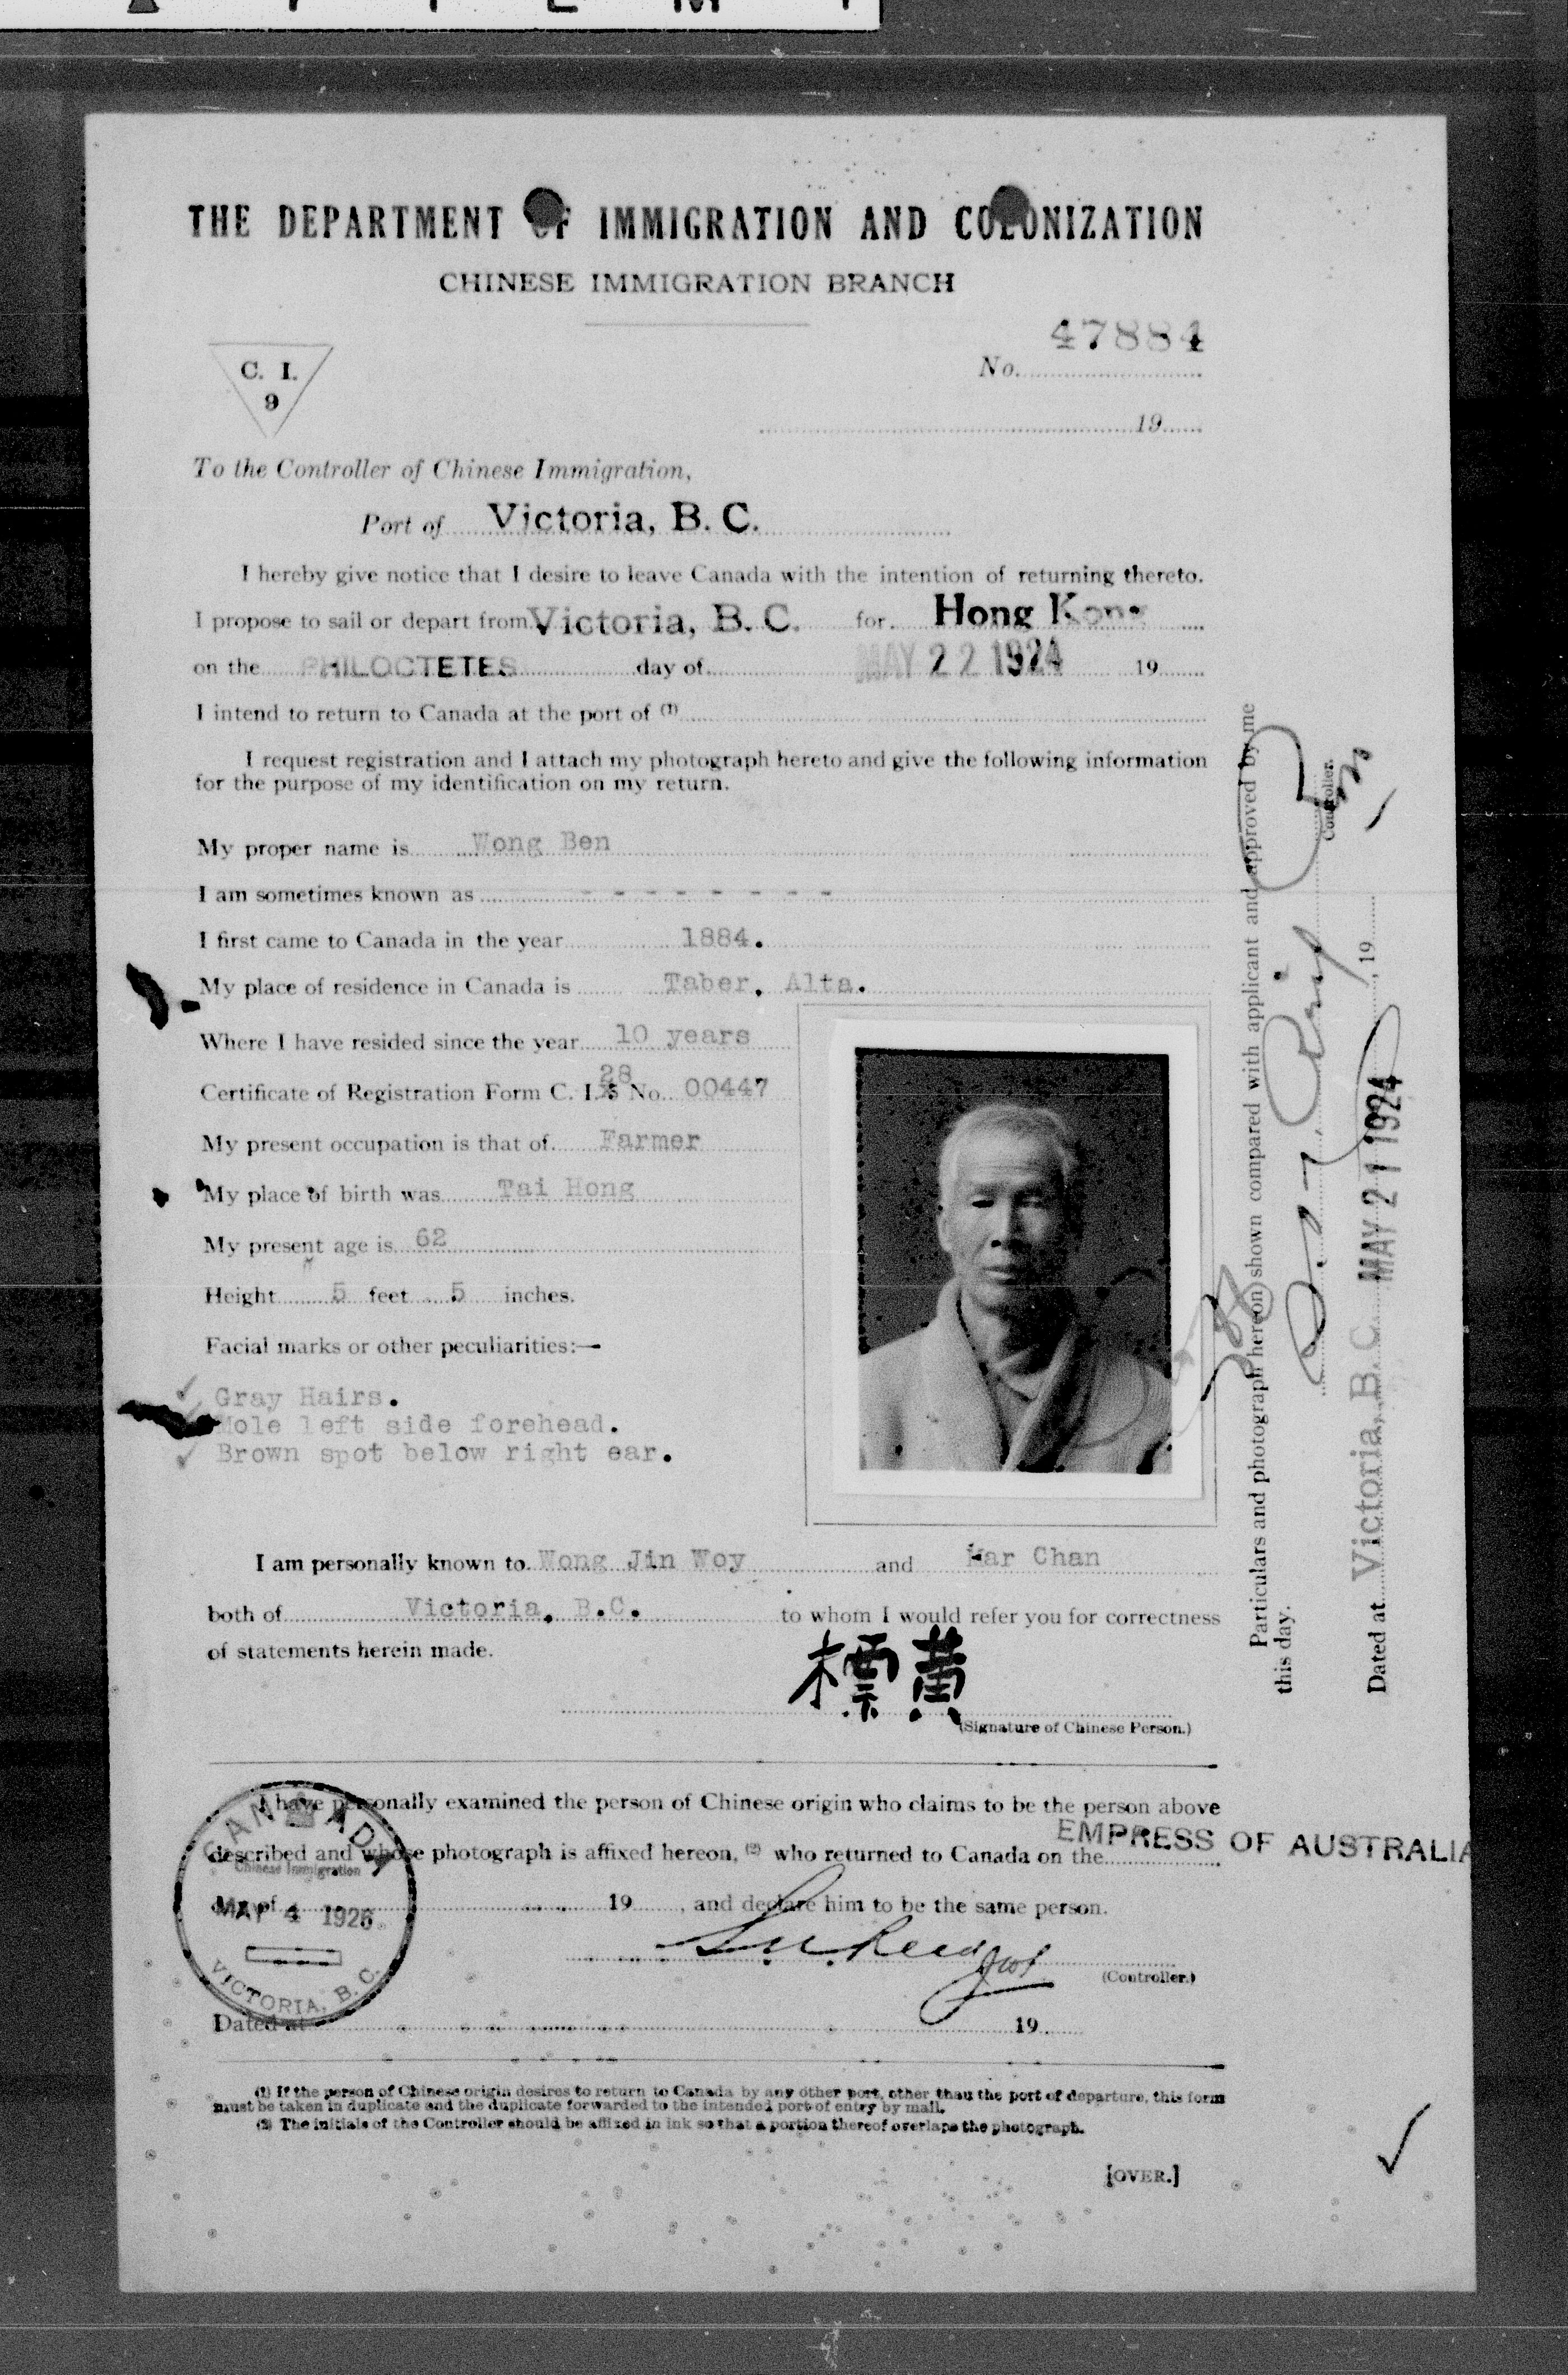 THE DEPARTMENT OF IMMIGRATION AND COLONIZATION
CHINESE IMMIGRATION BRANCH
47884
No.
C. I.
9
19
To the Controller of Chinese Immigration,
Port of Victoria, B. C.
I hereby give notice that I desire to leave Canada with the intention of returning thereto.
I propose to sail or depart from Victoria, B. C. for Hong Kong
on the PHILOCTETES day of MAY 22 1924 19
I intend to return to Canada at the port of (1)
I request registration and I attach my photograph hereto and give the following information
for the purpose of my identification on my return.
My proper name is Wong Ben
I am sometimes known as - - - - - - - -
I first came to Canada in the year 1884.
My place of residence in Canada is Taber, Alta.
Where I have resided since the year 10 years
28
Certificate of Registration Form C. I. 5 No. 00447
My present occupation is that of Farmer
My place of birth was Tai Hong
My present age is 62
Height 5 feet 5 inches.
Facial marks or other peculiarities:—
Gray Hairs.
Mole left side forehead.
Brown spot below right ear.
I am personally known to Wong Jin Woy and Mar Chan
both of Victoria, B.C. to whom I would refer you for correctness
of statements herein made.
標黃
(Signature of Chinese Person.)
I have personally examined the person of Chinese origin who claims to be the person above
described and whose photograph is affixed hereon, (2) who returned to Canada on the EMPRESS OF AUSTRALIA
day of 19 , and declare him to be the same person.
(Controller.)
Dated at 19
CANADA
Chinese Immigration
MAY 4 1926
VICTORIA, B. C.
(1) If the person of Chinese origin desires to return to Canada by any other port, other than the port of departure, this form
must be taken in duplicate and the duplicate forwarded to the intended port of entry by mail.
(2) The initials of the Controller should be affixed in ink so that a portion thereof overlaps the photograph.
[OVER.]
Particulars and photograph hereon shown compared with applicant and approved by me
this day.
Controller.
Dated at Victoria, B. C. MAY 21 1924 , 19